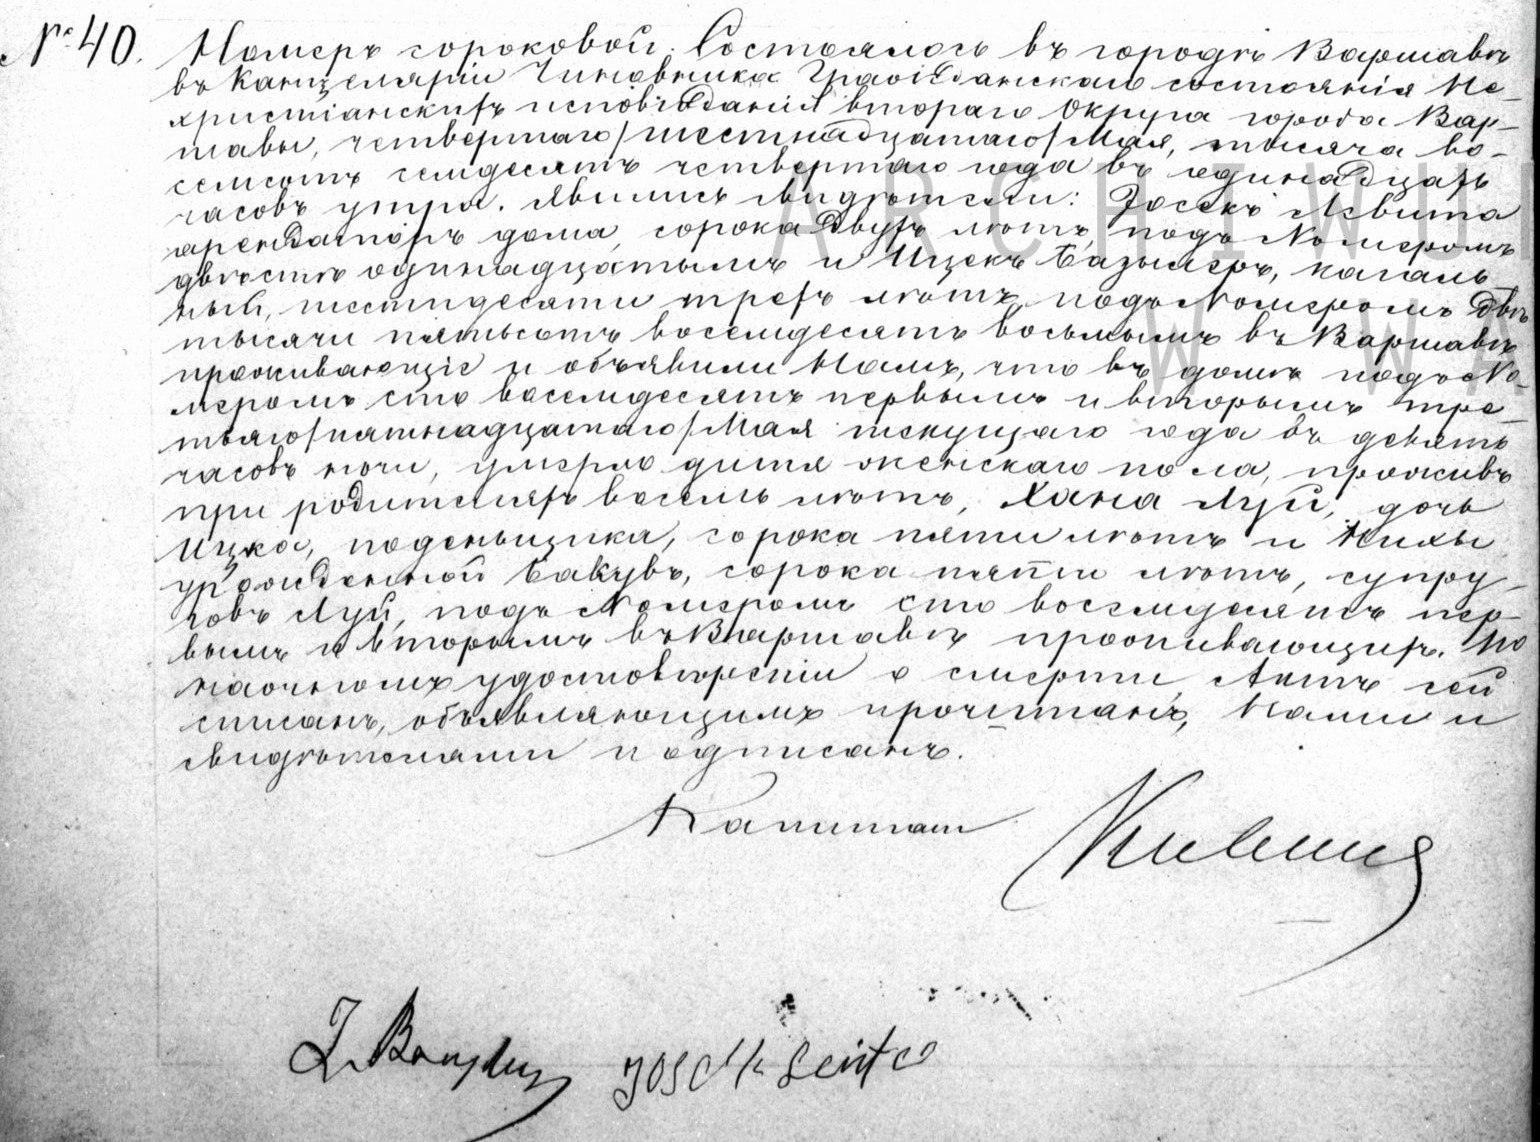 № 40. Номеръ сороковой. Состоялось въ городѣ Варшавѣ
въ Канцеляріи Чиновника Гражданскаго состоянія Не-
христіанскихъ исповѣданій втораго Округа города Вар-
шавы, четвертаго/шестнадцатаго/Мая, тысяча во-
семсотъ семдесятъ четвертаго года въ одинадцать
часовъ утра. Явились свидѣтели: Іосекъ Левита
арендаторъ дома, сорока двухъ лѣтъ, подъ Номеромъ
двѣстѣ одинадцатымъ и Ицекъ Базылеръ, кагаль
ный, шестидесяти трехъ лѣтъ, подъ Номеромъ двѣ
тысячи пятьсотъ восемдесятъ восьмымъ въ Варшавѣ
проживающіе и объявили Намъ, что въ домѣ подъ Но-
меромъ сто восемдесятъ первымъ и вторымъ тре-
тьяго/пятнадцатаго/Мая текущаго года въ девять
часовъ ночи, умерло дитя женскаго пола, проживъ
при родителяхъ восемь лѣтъ, Хана Луй, дочь
Ицка, поденьщика, сорока пяти лѣтъ и
урожденной Бакувъ, сорока пяти лѣтъ, супру-
говъ Луй, подъ Номеромъ сто восемдесятъ пер-
вымъ и вторымъ въ Варшавѣ проживающихъ. По
наочномъ удостовѣреніи о смерти, Актъ сей
списанъ, объявляющимъ прочитанъ, Нами и
свидѣтелями подписанъ.
Капитан
Josek Levita
ARCHIWU
W WA